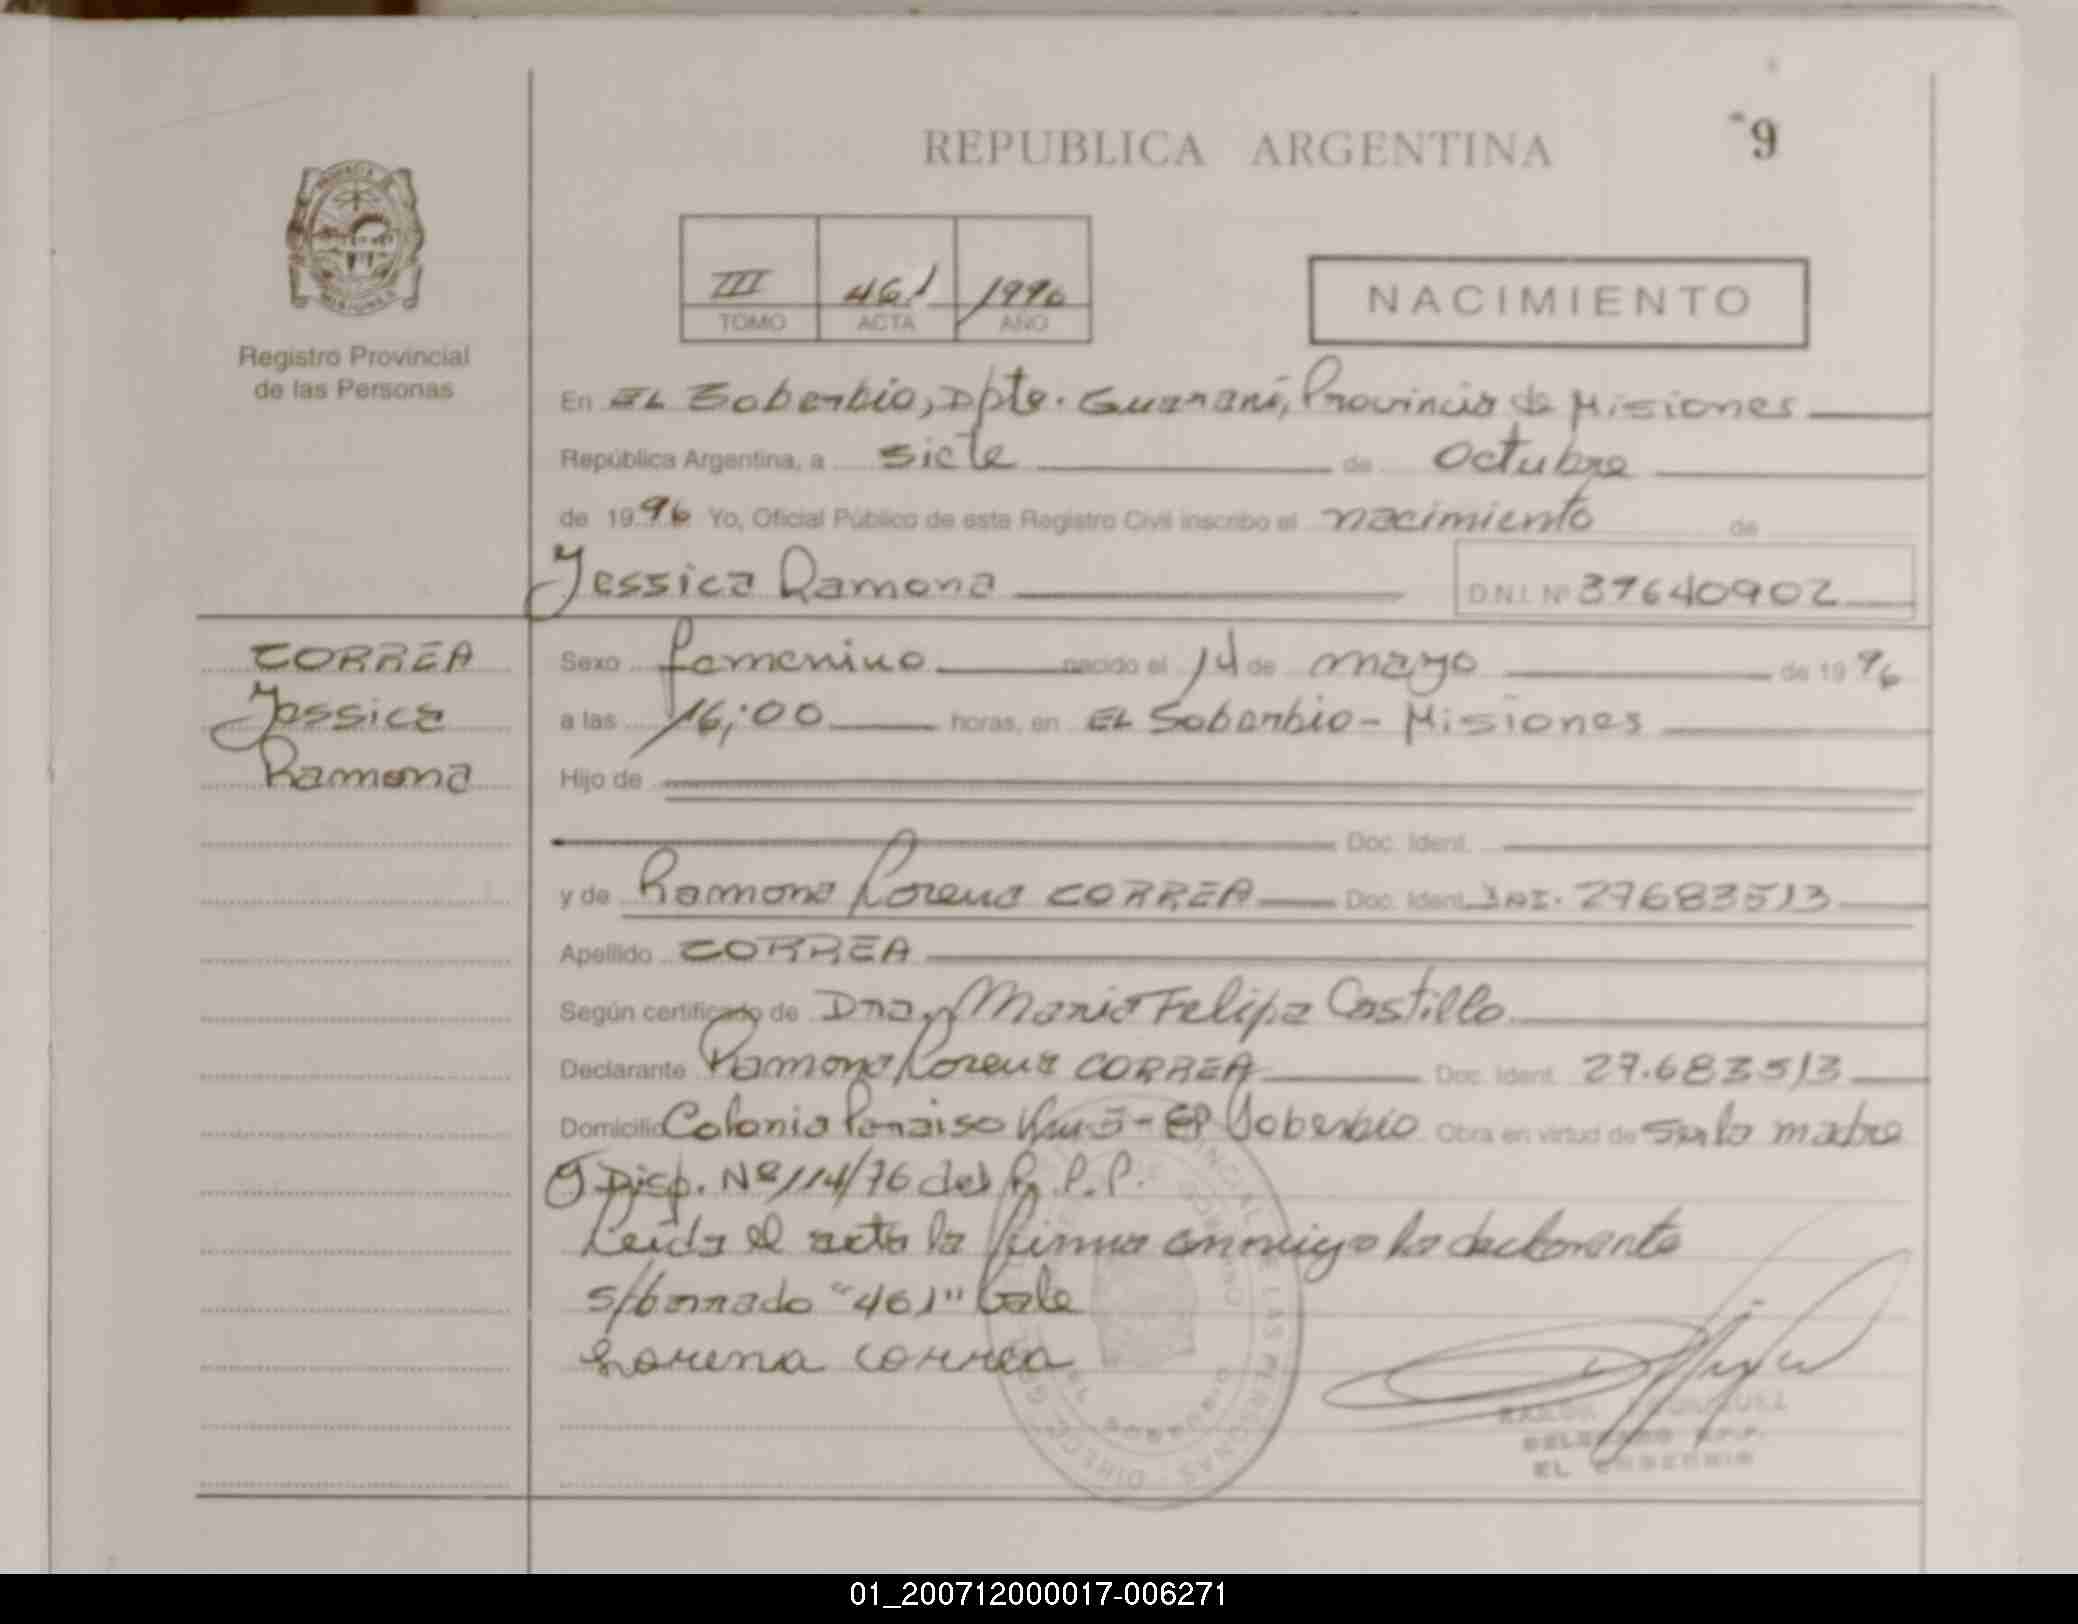 REPUBLICA ARGENTINA
9
PROVINCIA DE MISIONES
Registro Provincial
de las Personas
III 461 1996
TOMO ACTA AÑO
NACIMIENTO
En EL Soberbio, Dpto. Guaraní, Provincia de Misiones
República Argentina, a siete de octubre
de 1996 Yo, Oficial Público de este Registro Civil inscribo el nacimiento de
Jessica Ramona D.N.I. Nº 39640902
CORREA
Jessica
Ramona
Sexo femenino nacido el 14 de mayo de 1996
a las 16:00 horas, en EL Soberbio - Misiones
Hijo de
Doc. Ident.
y de Ramona Lorena CORREA Doc. Ident. DNI. 27683513
Apellido CORREA
Según certificado de Dra. Maria Felipa Castillo
Declarante Ramona Lorena CORREA Doc. Ident. 27.683513
Domicilio Colonia Paraiso - El Soberbio Obra en virtud de ser la madre
Disp. Nº 114/76 del R.P.P.
Leída el acta la firma conmigo la declarante
s/borrado "461" Vale
Lorena correa
EL SOBERBIO
DELEGADO R.P.P.
EL SOBERBIO
01_200712000017-006271